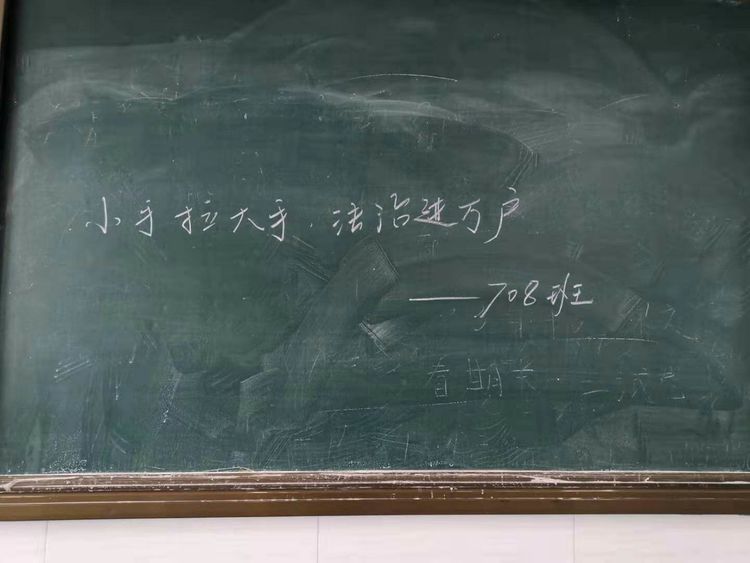 小手拉大手，法治进万户
——708班